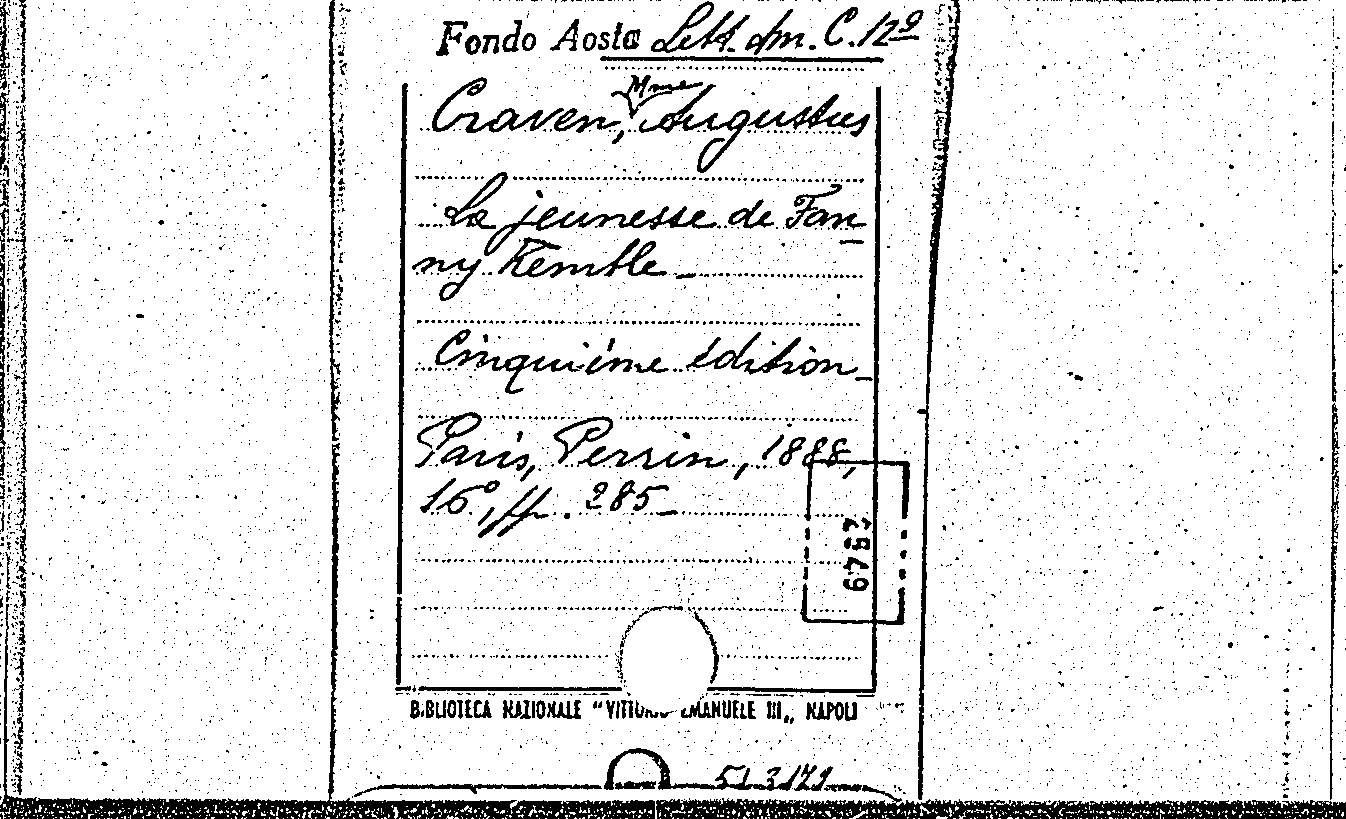 Fondo Aosta Lett. am. C. 12º
Craven, Mme Augustus
La jeunesse de Fan
ny Kemble_
Cinquième édition_
Paris, Perrin, 1888,
16º, pp. 285_
6787
BIBLIOTECA NAZIONALE "VITTORIO EMANUELE III„ NAPOLI